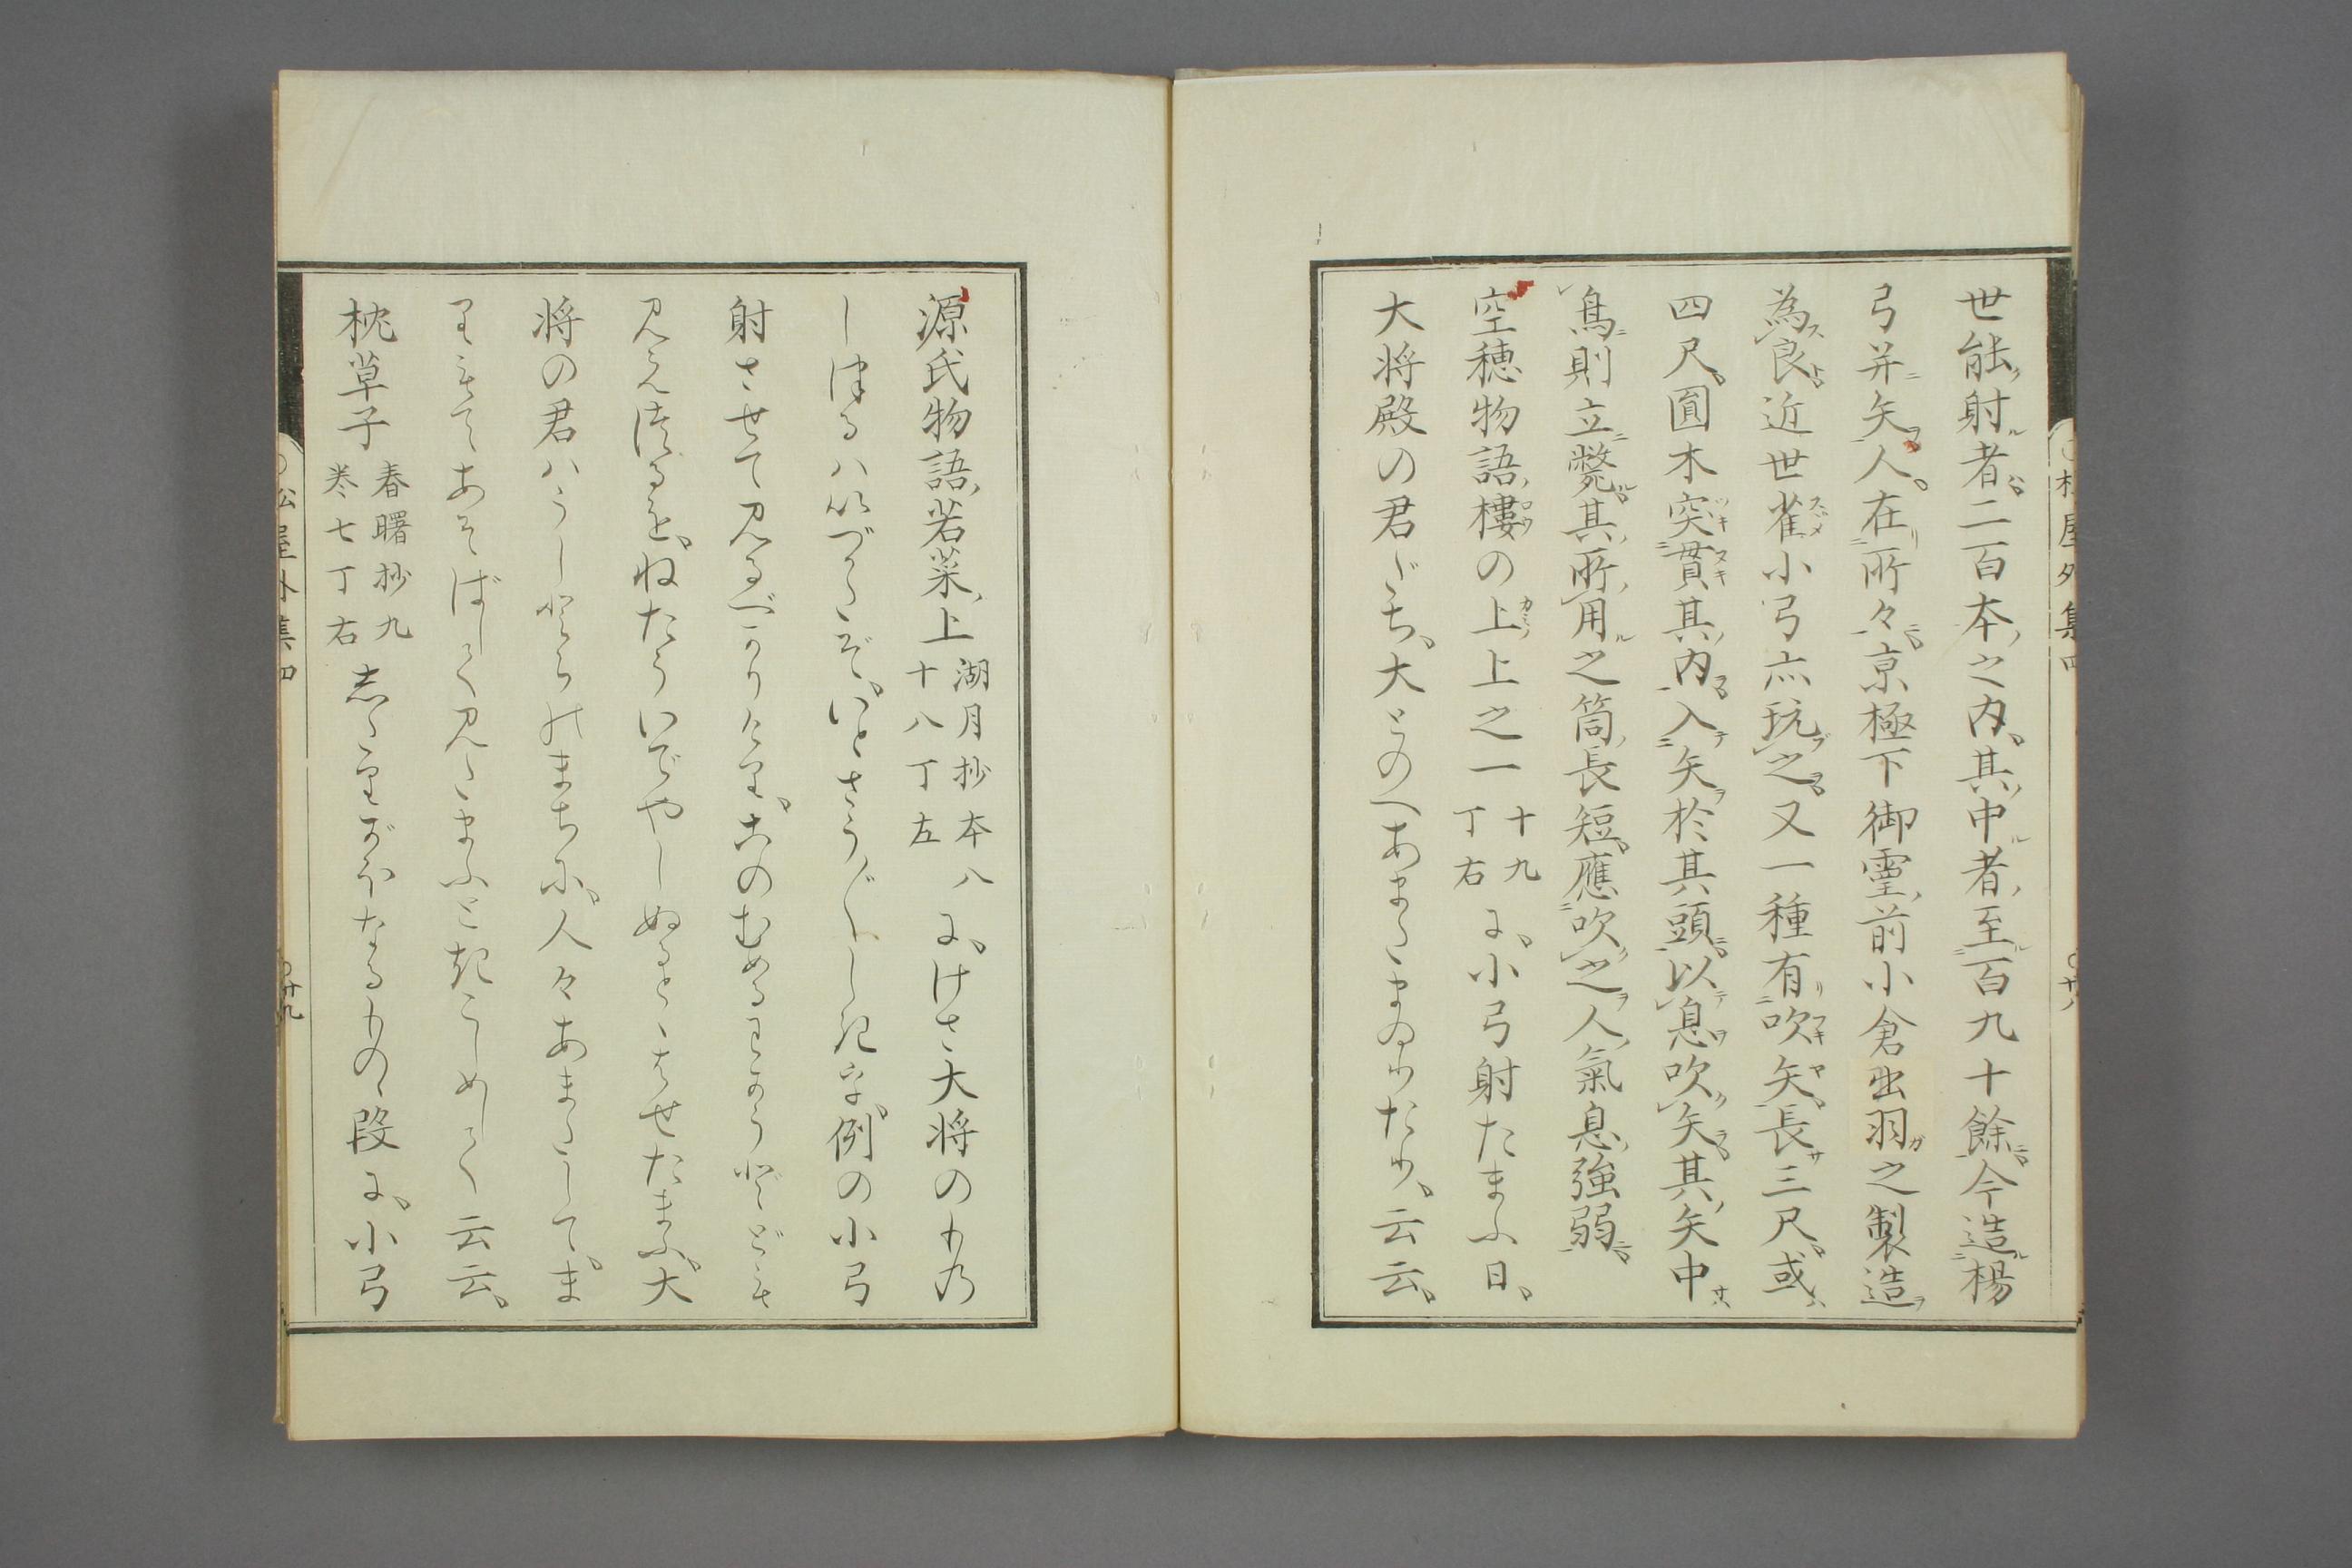 世能射者二百本之内其中者至百九十餘今造楊
弓并矢人在所々京極下御霊前小倉出羽之製造
為良近世雀小弓亦玩之又一種有吹矢長三尺或
四尺圓木突貫其内入矢於其頭以息吹矢其矢中
鳥則立斃其所用之筒長短應吹之人氣息強弱
空穂物語樓の上上之一十九丁右に小弓射たまふ日
大将殿の君だち大とのへあまたまゐりたり云云
源氏物語若菜上湖月抄本八十八丁左にけさ大将のもの
しつるはいづかたぞいとさう〴〵しきを例の小弓
射させて見るべかりけりこのむめるわかうどどもも
見えつるをねたういでやしぬるとゝはせたまふ大
将の君はうしとらのまちに人々あまたしてま
りもてあそばして見たまふときこしめして云云
枕草子春曙抄九巻七丁右したりがほなるもの段に小弓
松屋外集四